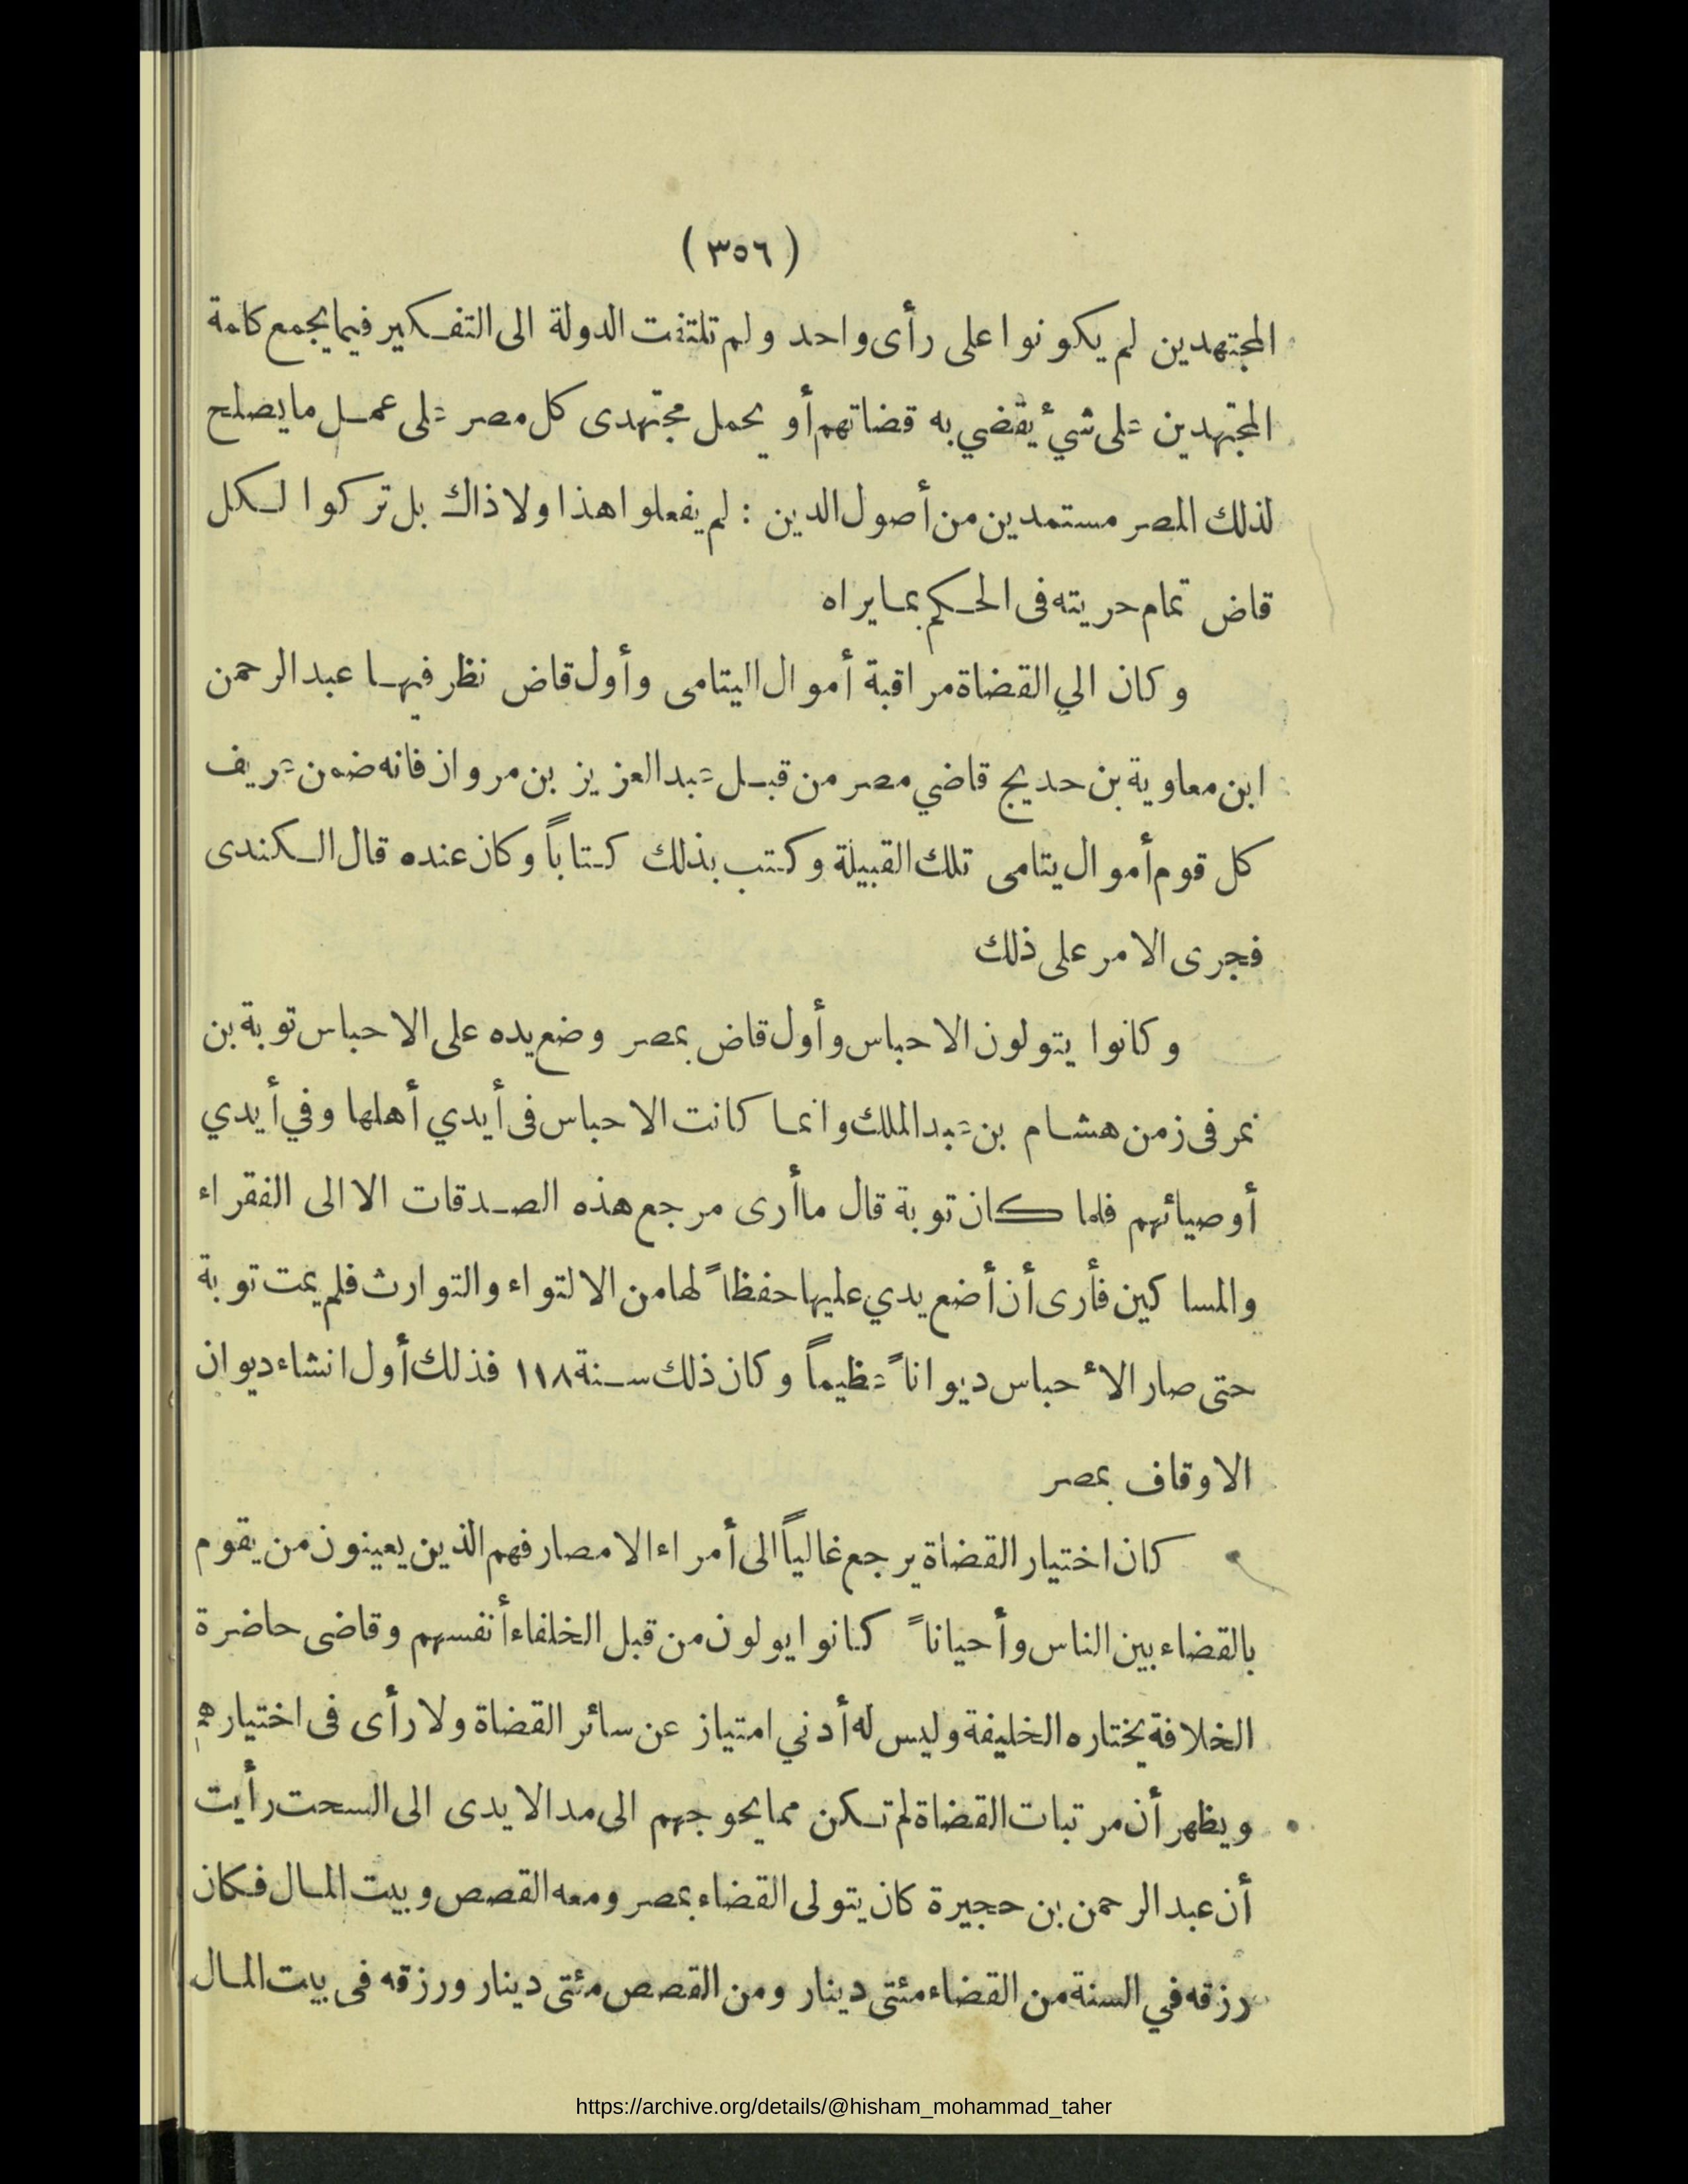 (٣٥٦)
المجتهدين لم يكونوا على رأى واحد ولم تلتفت الدولة الى التفكير فيما يجمع كلمة
المجتهدين على شئ يقضي به قضاتهم أو يحمل مجتهدى كل مصر على عمل ما يصلح
لذلك المصر مستمدين من أصول الدين : لم يفعلوا هذا ولا ذاك بل تركوا لكل
قاض تمام حريته فى الحكم بما يراه
وكان الي القضاة مراقبة أموال اليتامى وأول قاض نظر فيها عبد الرحمن
ابن معاوية بن حديج قاضي مصر من قبل عبد العزيز بن مروان فانه ضمن عريف
كل قوم أموال يتامى تلك القبيلة وكتب بذلك كتاباً وكان عنده قال الكندى
فجرى الامر على ذلك
وكانوا يتولون الاحباس وأول قاض بمصر وضع يده على الاحباس توبة بن
نمر فى زمن هشام بن عبد الملك وانما كانت الاحباس فى أيدي أهلها وفي أيدي
أوصيائهم فلما كان توبة قال ما أرى مرجع هذه الصدقات الا الى الفقراء
والمساكين فأرى أن أضع يدي عليها حفظاً لها من الالتواء والتوارث فلم يمت توبة
حتى صار الأحباس ديواناً عظيماً وكان ذلك سنة ١١٨ فذلك أول انشاء ديوان
الاوقاف بمصر
كان اختيار القضاة يرجع غالباً الى أمراء الامصار فهم الذين يعينون من يقوم
بالقضاء بين الناس وأحياناً كانوا يولون من قبل الخلفاء أنفسهم وقاضى حاضرة
الخلافة يختاره الخليفة وليس له أدني امتياز عن سائر القضاة ولا رأى فى اختيارهم
ويظهر أن مرتبات القضاة لم تكن مما يحوجهم الى مد الايدى الى السحت رأيت
أن عبد الرحمن بن حجيرة كان يتولى القضاء بمصر ومعه القصص وبيت المال فكان
رزقه في السنة من القضاء مئتى دينار ومن القصص مئتى دينار ورزقه فى بيت المال
https://archive.org/details/@hisham_mohammad_taher